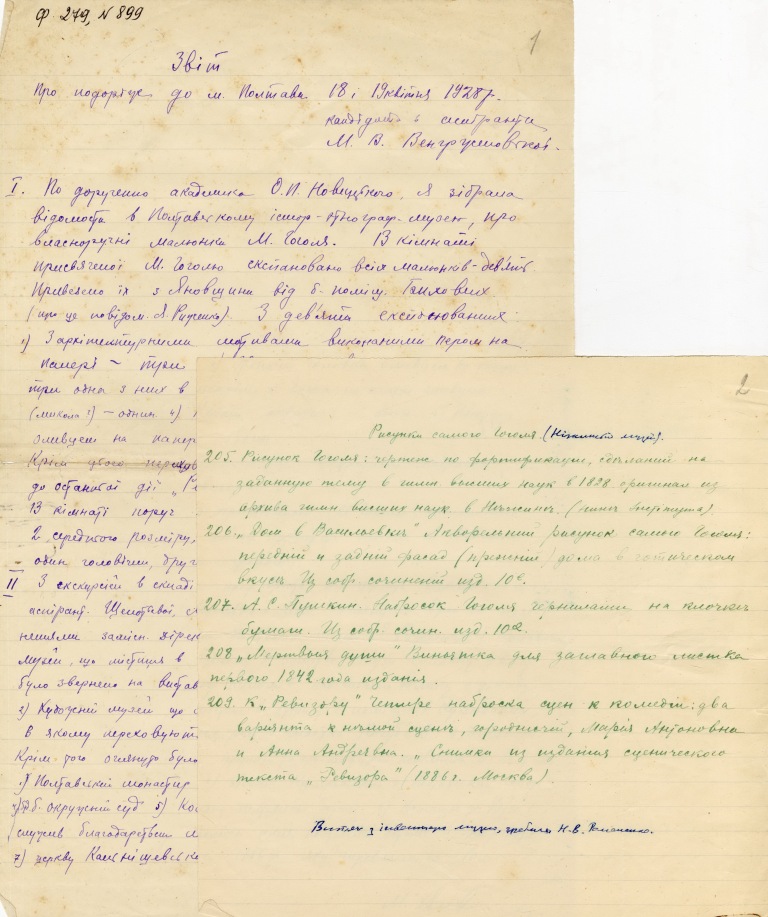 Ф. 279, N 899
1
Звіт
Про подорож до м. Полтави 18 і 19 квітня 1928 р.
кандидата в аспіранти
М. В.
I. По дорученню академика О. П. Новицького, я зібрала
відомости в Полтавському істор-етнограф-музею, про
власноручні малюнки М. Гоголя. В кімнаті
присвяченої М. Гоголю експановано всіх малюнків - дев'ять
Привезено їх з Яновщини від б. поміщ.
(про це повідом. Я. Риженко). З дев'яти
1) З архітектурними мотивами виконаними пером на
папері – три
три одна з них в
(микола ?) – один. 4)
оливцем на папер
Крім цього
до останньої дії „Ре
В кімнаті поруч
2 середнього розміру,
один головний, друг
II З екскурсій в складі
аспірант.
ниями заміс. дірек
музей, що містиця в
було звернено на вистав
2) Художній музей що
в якому переховуют
Крім того оглянуто було
1) Полтавській монастир
б. окружний суд 5)
(служив благодарствен
7) церкву
2
Рисунки самого Гоголя. (Ніжинськ. музей).
205. Рисунок Гоголя: чертеж по фортификации, сдѣланий на
заданную тему в гимн. высших наук в 1828. оригинал из
архива гимн. висших наук. в Нѣжинѣ. (нинѣ Института)
206. „Дом в Васильевкѣ" Акварельний рисунок самого Гоголя:
передній и задній фасад (прежній) дома в готическом
вкусѣ. Из собр. сочинений изд. 10е.
207. А. С. Пушкин. Набросок Гоголя чернилами на клочкѣ
бумаги. Из собр. сочин. изд. 10е.
208 „Мертвыя души" Виньетка для заглавного листка
первого 1842 года издания.
209. К „Ревизору" Четыре наброска сцен к комедіи: два
варіянта к нѣмой сценѣ, городничій, Марія Антоновна
и Анна Андреевна. „Снимки из издания сценического
текста „Ревизора" (1886 г. Москва).
Витяг з інвентаря музею, зробила Н. В.